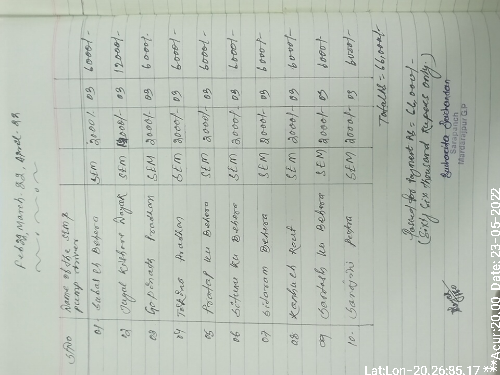 Feb 22, March 22, April-22
Sl No Name of the SEM & pump driver
01 Sahadeb Behera SEM 2000/- 03 6000/-
02 Jugal Kishore Nayak SEM 03 12000/-
03 Gopinath Pradhan SEM 2000/- 03 6000/-
04 Pradhan SEM 2000/- 03 6000/-
05 Pratap Ku Behera SEM 2000/- 03 6000/-
06 Ku Behera SEM 2000/- 03 6000/-
07 Sidaram Behera SEM 2000/- 03 6000/-
08 Rout SEM 2000/- 03 6000/-
09 Ku Behera SEM 2000/- 03 6000/-
10. Sarojini SEM 2000/- 03 6000/-
Total Rs = 66,000/-
Passed for Payment Rs = 66,000/-
(Sixty Six thousand Rupees only.)
Sarapanch
G.P
Lat:Lon-20.26:85.17 **Acur:20.00 Date: 23-05-2022